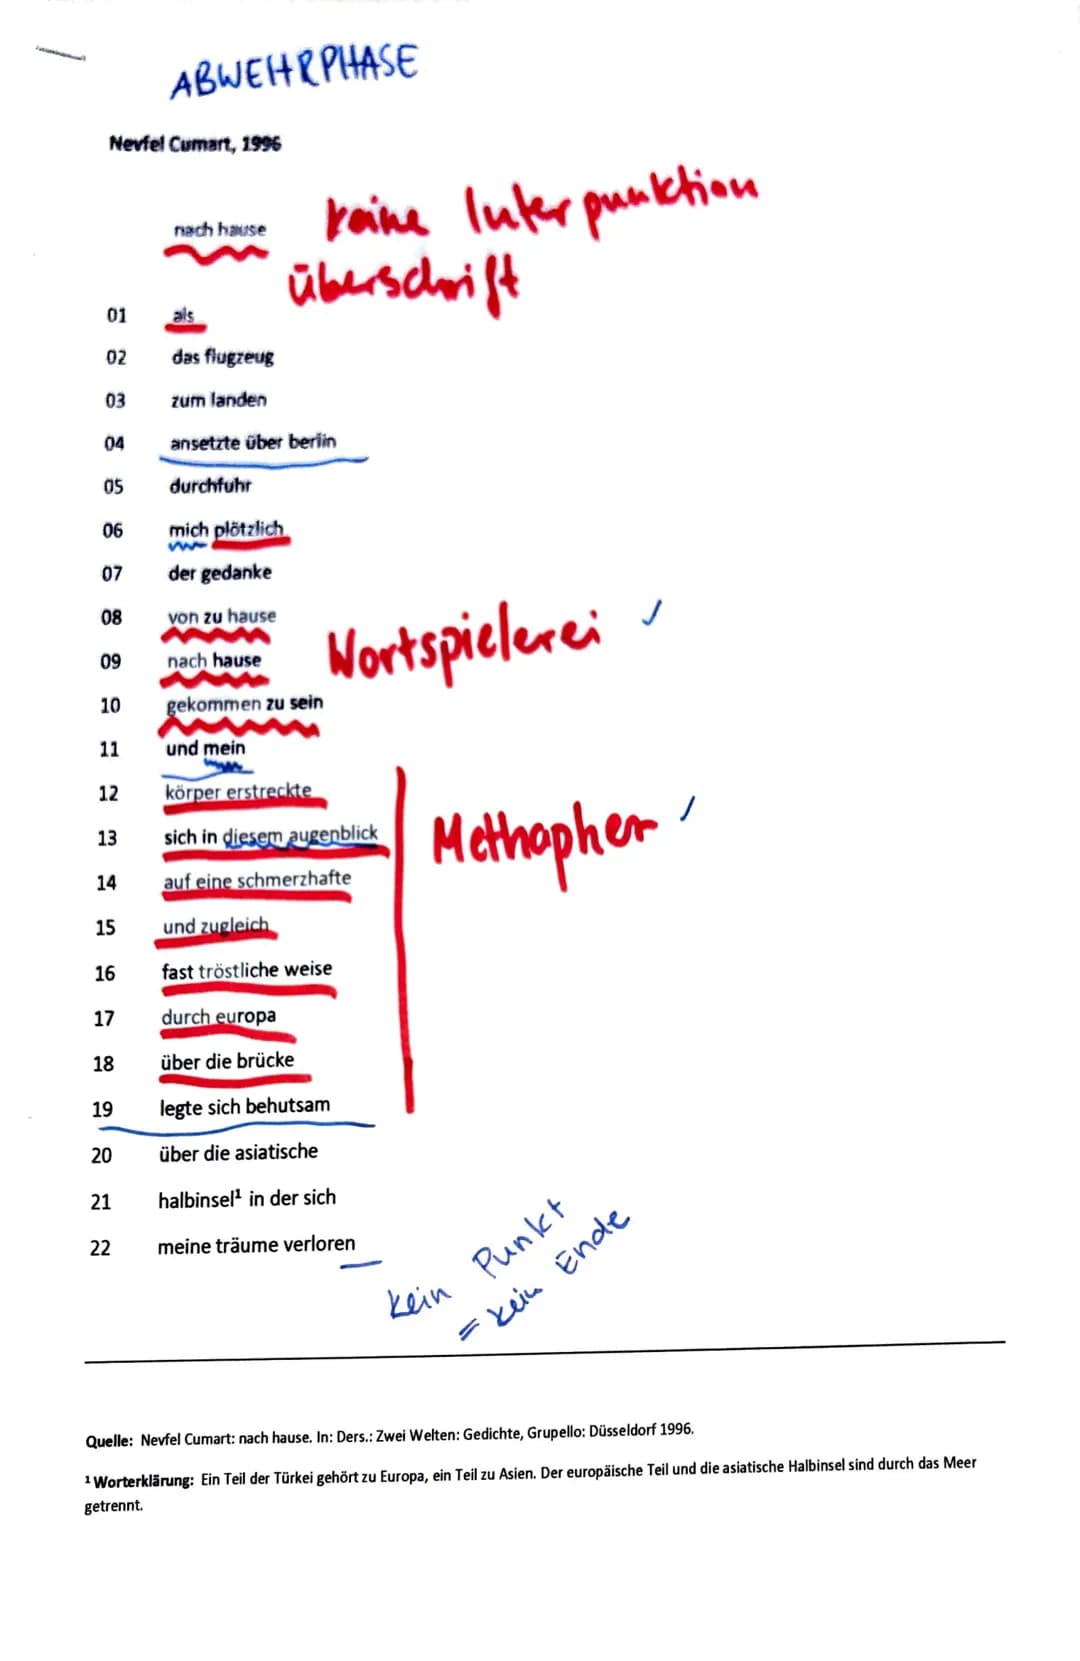 ABWEHRPHASE
Nevfel Cumart, 1996
nach hause
keine Interpunktion
überschrift
01 als
02 das flugzeug
03 zum landen
04 ansetzte über berlin
05 durchfuhr
06 mich plötzlich
07 der gedanke
08 von zu hause
09 nach hause
Wortspielerei
10 gekommen zu sein
11 und mein
12 körper erstreckte
13 sich in diesem augenblick
Methapher
14 auf eine schmerzhafte
15 und zugleich
16 fast tröstliche weise
17 durch europa
18 über die brücke
19 legte sich behutsam
20 über die asiatische
21 halbinsel¹ in der sich
22 meine träume verloren
kein Punkt
= kein Ende
Quelle: Nevfel Cumart: nach hause. In: Ders.: Zwei Welten: Gedichte, Grupello: Düsseldorf 1996.
¹ Worterklärung: Ein Teil der Türkei gehört zu Europa, ein Teil zu Asien. Der europäische Teil und die asiatische Halbinsel sind durch das Meer
getrennt.